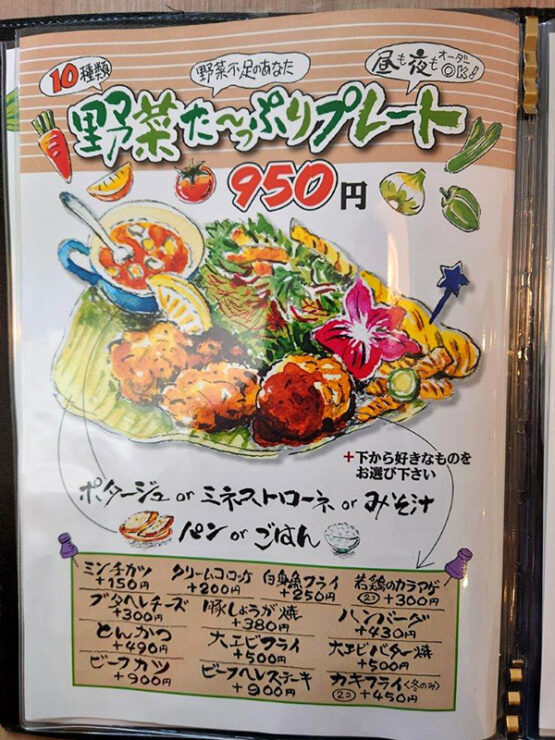 10種類
野菜不足のあなた
昼も夜もオーダーOK!
野菜た〜っぷりプレート
950円
+下から好きなものを
お選び下さい
ポタージュ or ミネストローネ or みそ汁
パン or ごはん
ミンチカツ +150円
クリームコロッケ +200円
白身魚フライ +250円
若鶏のカラアゲ (2コ) +300円
ブタヘレチーズ +300円
豚しょうが焼 +380円
ハンバーグ +430円
とんかつ +490円
大エビフライ +500円
大エビバター焼 +500円
ビーフカツ +900円
ビーフヘレステーキ +900円
カキフライ(冬のみ) (2コ) +450円